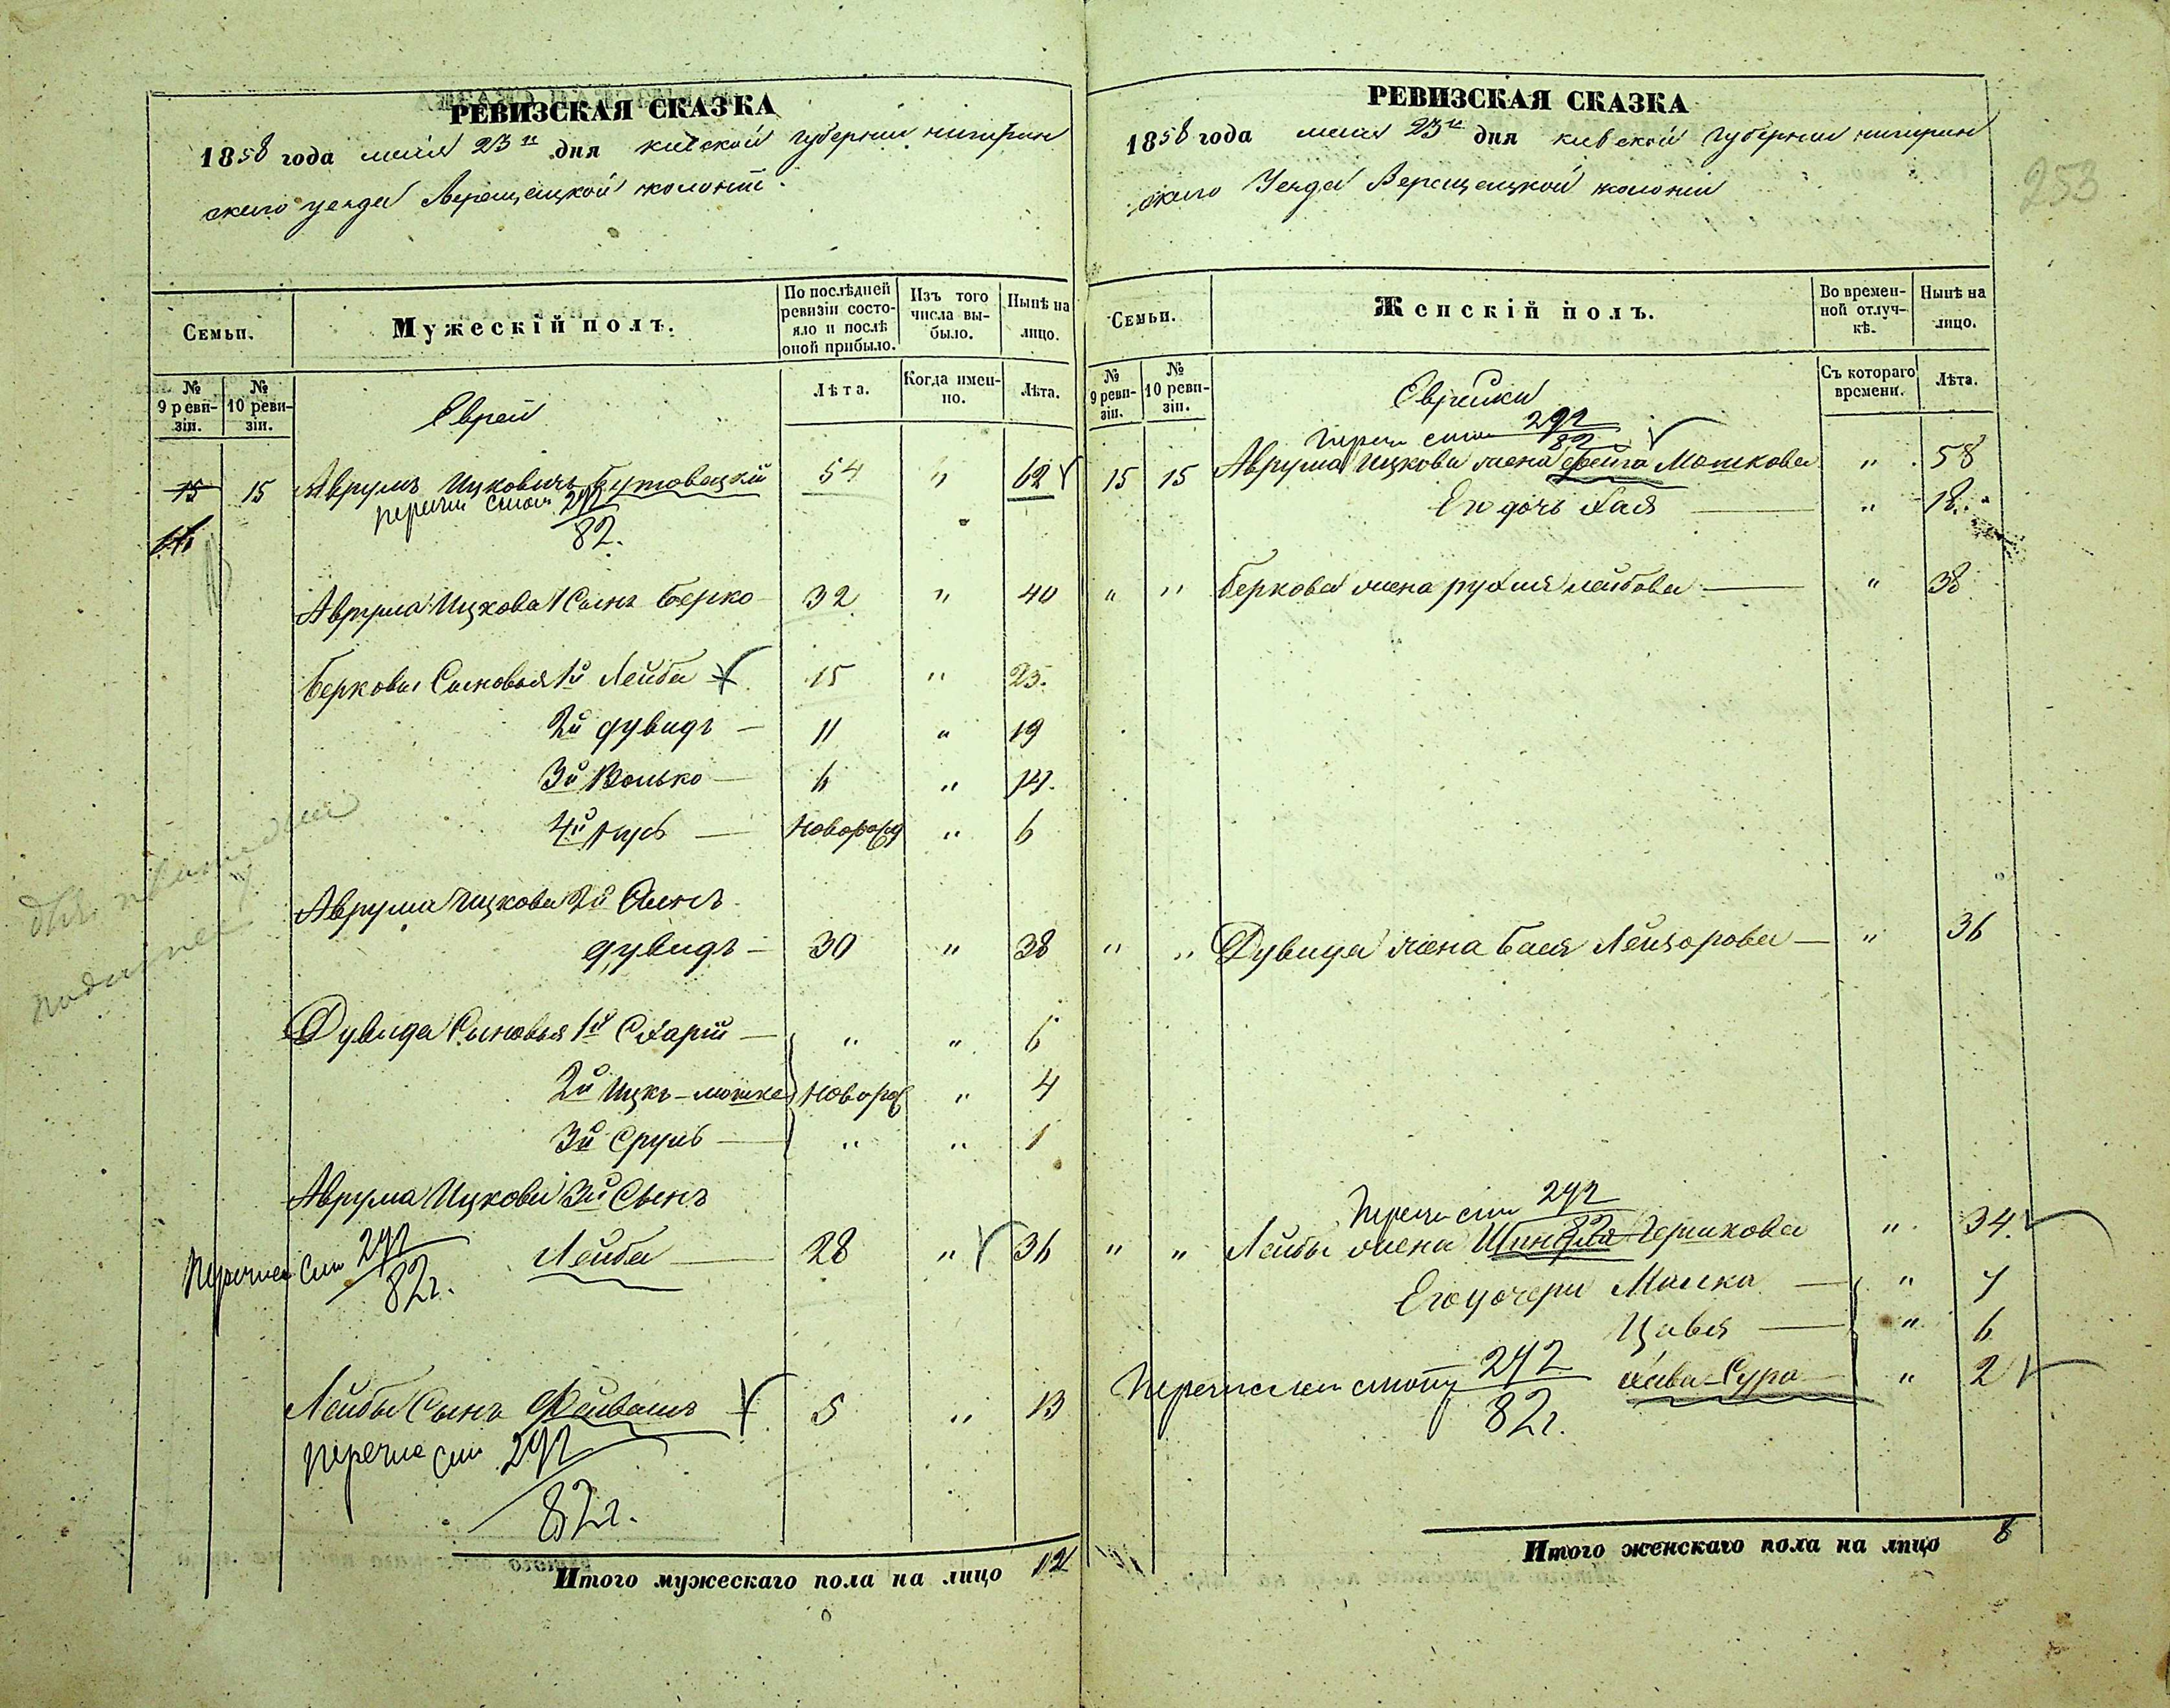 РЕВИЗСКАЯ СКАЗКА
1858 года мая 23 дня киевской губерніи чигирин
скаго уезда Верещацкой колоніи.
Семьи.
Мужескій полъ.
По послѣдней ревизіи состояло и послѣ оной прибыло.
Изъ того числа выбыло.
Нынѣ на лицо.
№ 9 ревизіи.
№ 10 ревизіи.
Евреи
Лѣта.
Когда именно.
Лѣта.
15 15 Аврумъ Ицковичъ Бутовецкій 54 " 62
перечи стат 292
82.
Аврума Ицкова 1 Сынъ Берко 32 " 40
Берковы Сыновья 1й Лейба 15 " 23.
2й дувидъ — 11 " 19
3й Волько — 6 " 14.
4й — Новорожд " 6
Аврума Ицкова 2й Сынъ
дувидъ — 30 " 38
Дувида Сыновья 1й Схарій — " " 6
2й Ицкъ-мошко Новорож " 4
3й Сруль — " " 1
Аврума Ицкова 3й Сынъ
Лейба — 28 " 36
перечислен 292
82г.
Лейбы Сынъ Файвашъ 5 " 13
перечис 292
82г.
Итого мужескаго пола на лицо 12
РЕВИЗСКАЯ СКАЗКА
253
1858 года мая 23 дня киевской губерніи чигирин
скаго Уезда Верещацкой колоніи
Семьи.
Женскій полъ.
Во временной отлучкѣ.
Нынѣ на лицо.
№ 9 ревизіи.
№ 10 ревизіи.
Еврейки
Съ котораго времени.
Лѣта.
292
82
15 15 Аврума Ицкова жена фейга Мошкова " 58
Его дочь Хая — " 18
" " Беркова жена рухля лейбова — " 38
" " Дувида жена Бася Лейзорова — " 36
292
82г
" " Лейбы жена Шиндля Гершкова " 34.
Его дочери Малка — " 7
Цивья — " 6
Хава-Сура — " 2
Перечислен 292
82г.
Итого женскаго пола на лицо 8